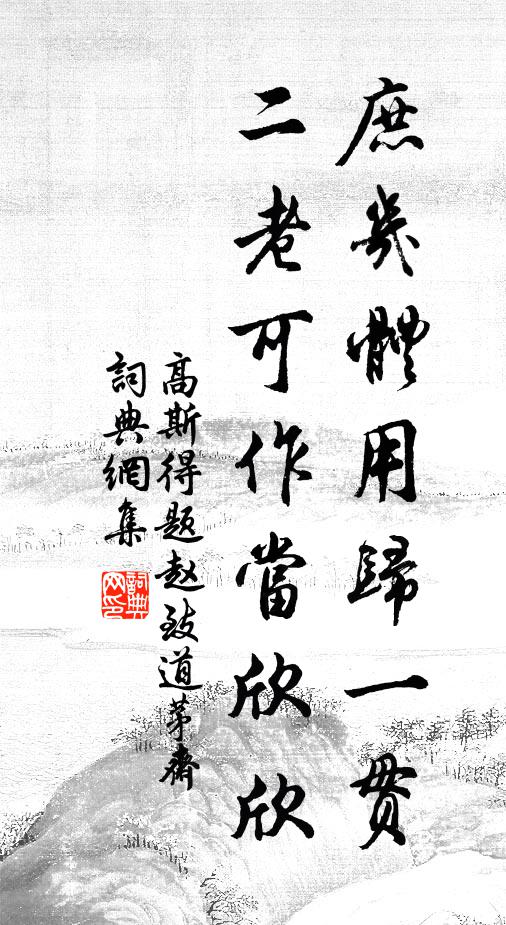 庶幾體用歸一貫
二老可作當欣欣
高斯得題赵致道茅齋
詞典網集
詞典网印